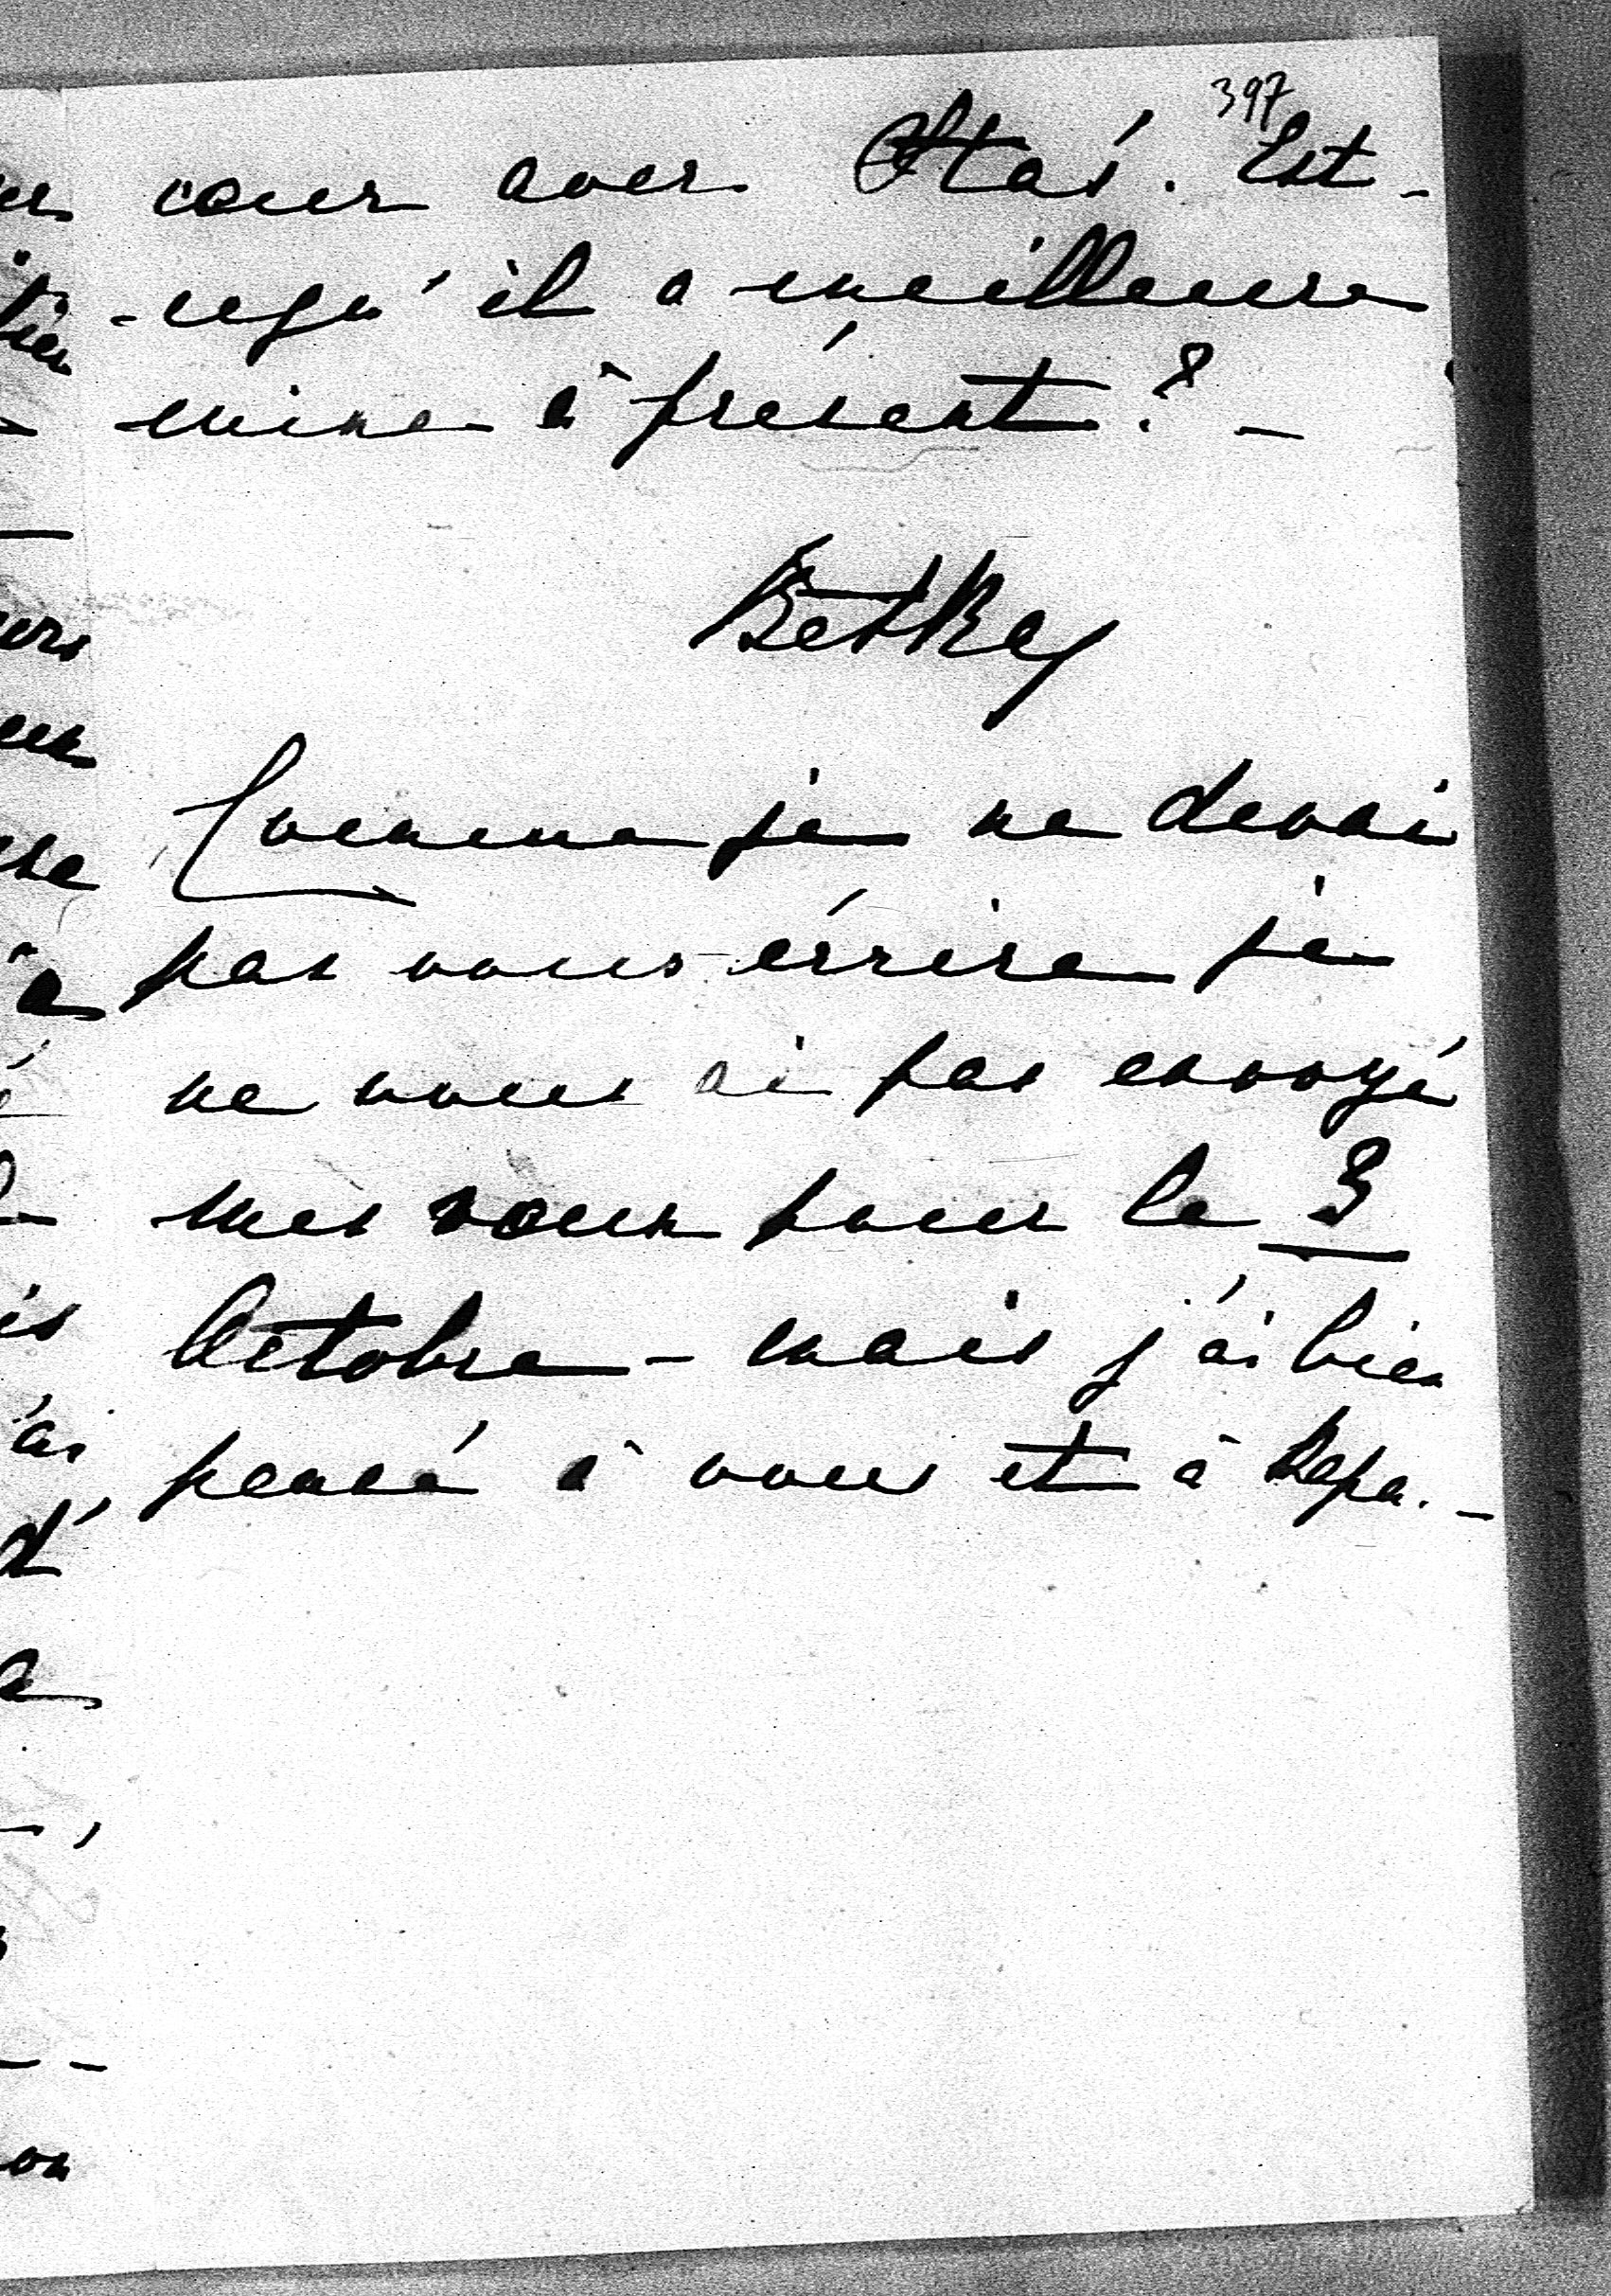 397
cœur avec Staś. Est-
-ce qu'il a meilleure
mine à présent? –
Betka
Comme je ne devai
pas vous écrire je
ne vous ai pas envoyé
mes vœux pour le 3
Octobre – mais j'ai bien
pensé à vous et à Bepa. –